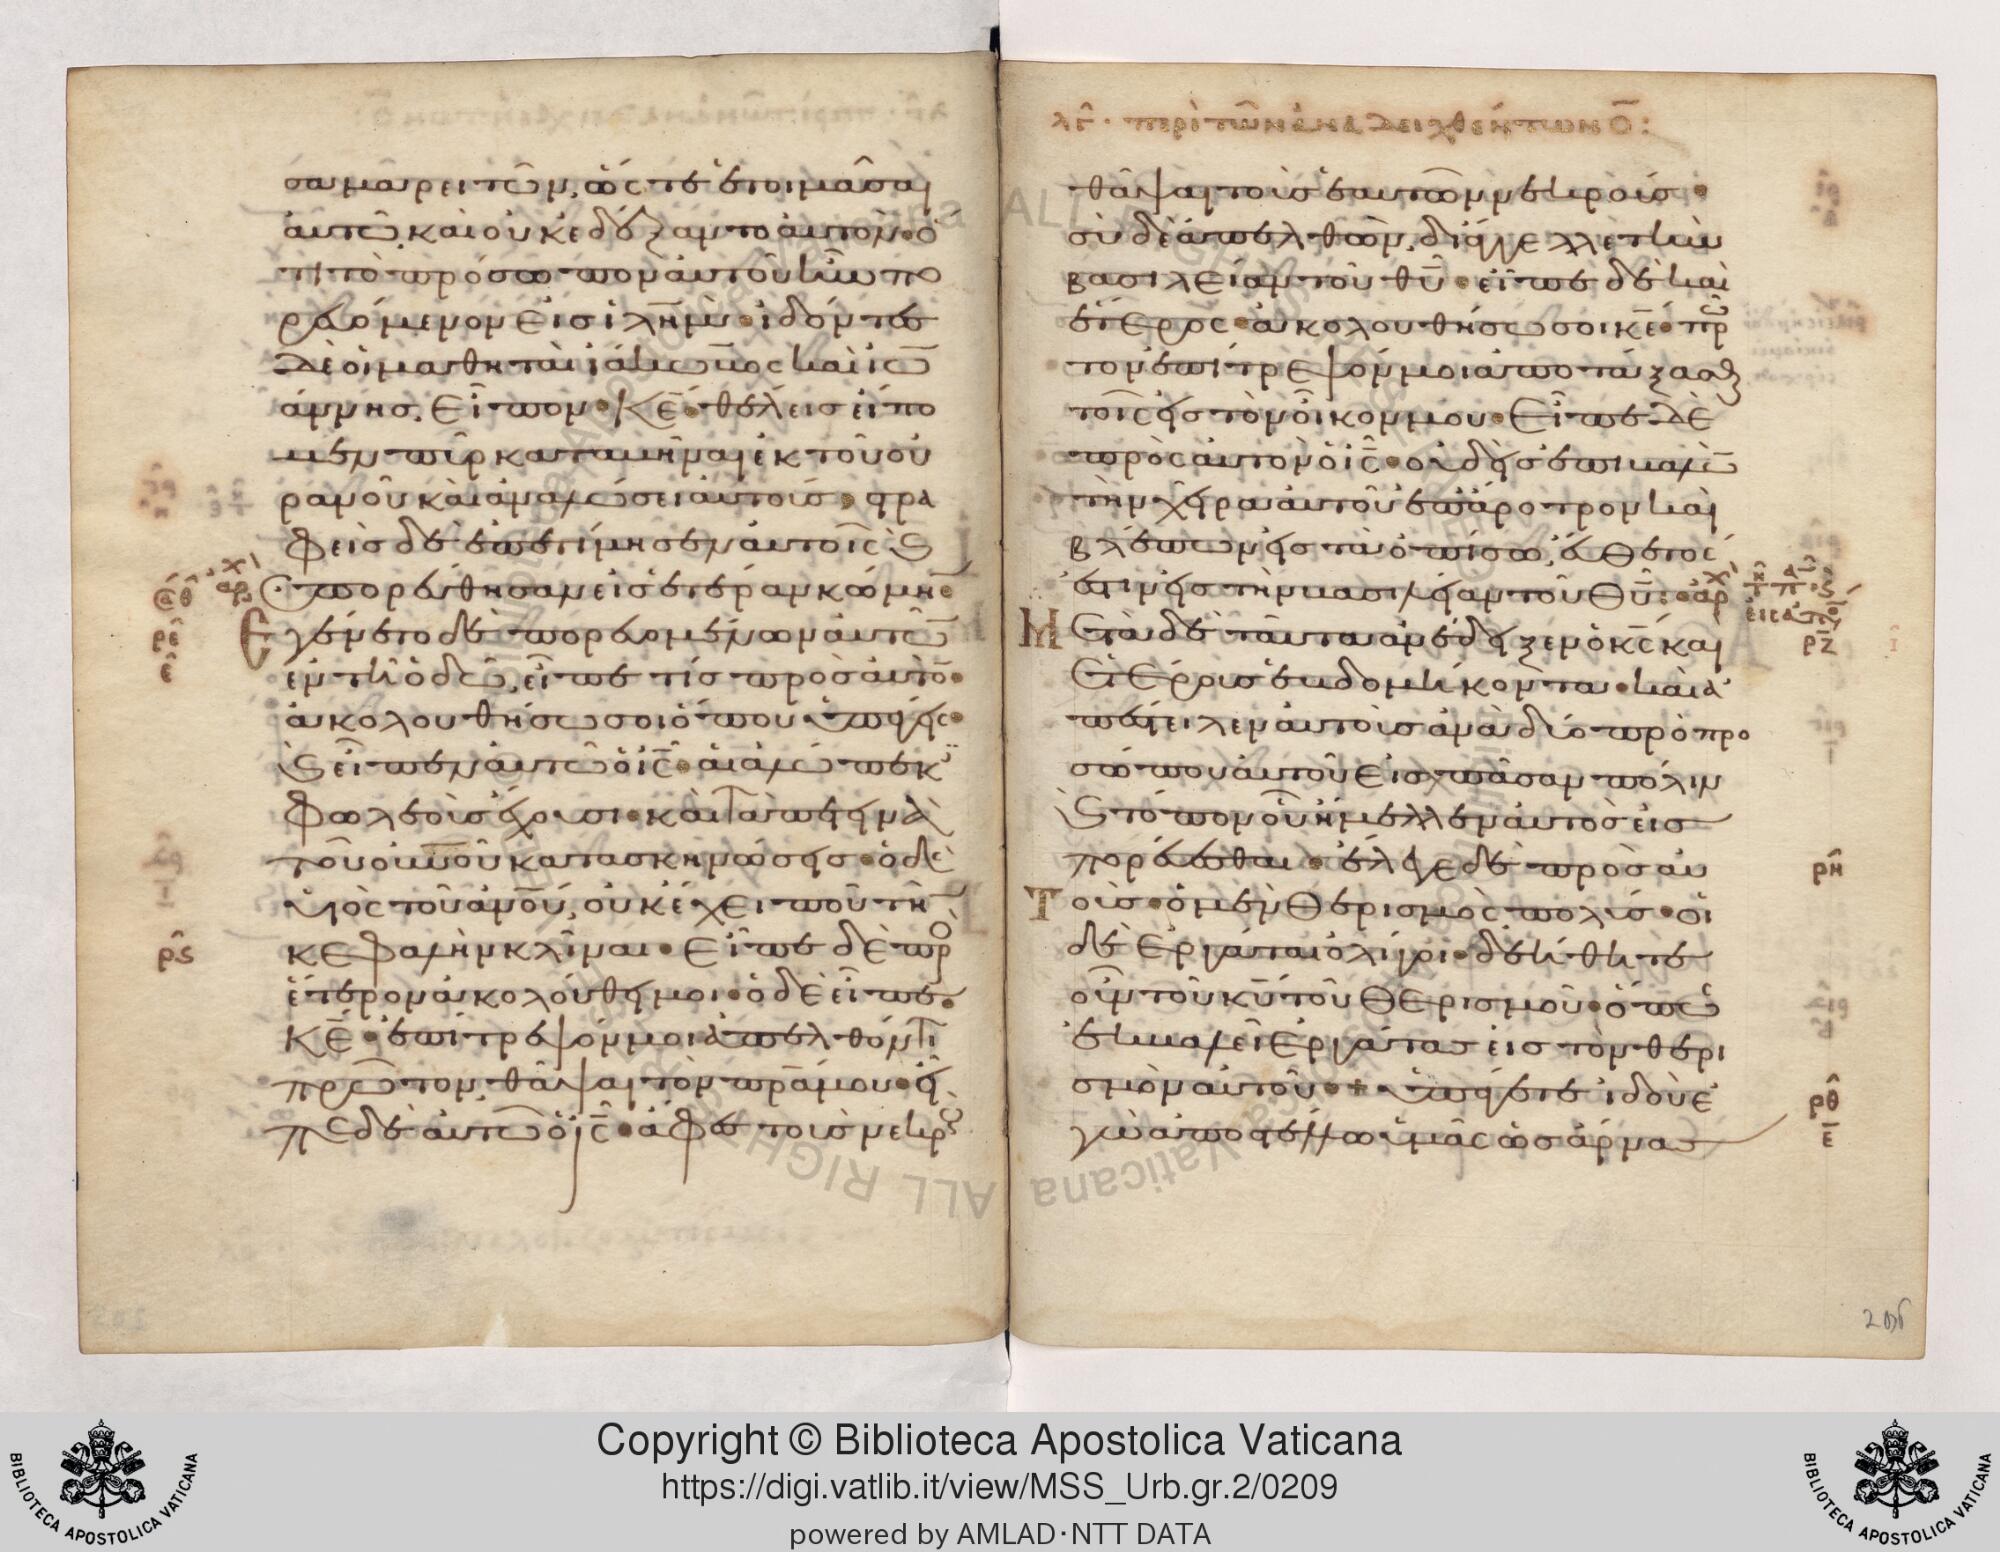 σαμαρειτῶν, ὥστε ἑτοιμᾶσαι
αὐτῶ, καὶ οὐκ ἐδέξαντο αὐτόν· ὅ
τι τὸ πρόσωπον αὐτοῦ ἦν πο
ρευόμενον εἰς ἱλῆμ· ἰδόντες
δὲ οἱ μαθηταὶ ἰάκωβος καὶ ἰω
άννης, εἶπον· κε· θέλεις εἴπο
μεν πῦρ καταβῆναι ἐκ τοῦ οὐ
ρανοῦ καὶ ἀναλῶσει αὐτούς· στρα
φεὶς δὲ ἐπετίμησεν αὐτοῖς καὶ
ἐπορεύθησαν εἰς ἑτέραν κώμην·
ἐγένετο δὲ πορευομένων αὐτῶν
ἐν τῆ ὁδῶ, εἶπέ τις πρὸς αὐτόν·
ἀκολουθήσω σοι ὅπου ὑπάγεις·
καὶ εἶπεν αὐτῶ ὁ ις· αἱ ἀλώπεκες
φωλεοὺς ἔχουσι· καὶ τὰ πετεινὰ
τοῦ οὐνοῦ κατασκηνώσεις· ὁ δὲ
υἱὸς τοῦ ἀνου, οὐκ ἔχει ποῦ τὴν
κεφαλὴν κλίναι· εἶπε δὲ πρ
ἕτερον ἀκολούθει μοι· ὁ δὲ εἶπε·
κε· ἐπίτρεψόν μοι ἀπελθόντι
πρῶτον θάψαι τὸν πρα μου· εἶ
πε δὲ αὐτῶ ὁ ις· ἄφες τοὺς νεκροὺς
ρε
ε
ρς
λς· περὶ τῶν ἀναδειχθέντων ο:
θάψαι τοὺς ἑαυτῶν νεκρούς·
σὺ δὲ ἀπελθὼν, διάγγελλε τὴν
βασιλείαν τοῦ θυ· εἶπε δὲ καὶ
ἕτερος· ἀκολουθήσω σοι κε· πρ
τον ἐπίτρεψόν μοι ἀποτάξασθαι
τοῖς εἰς τὸν οἶκον μου· εἶπε δὲ
πρὸς αὐτὸν ὁ ις· οὐδεὶς ἐπιβαλὼν
τὴν χεῖρα αὐτοῦ ἐπ' ἄροτρον καὶ
βλέπων εἰς τὰ ὀπίσω, εὔθετός
ἐστιν εἰς τὴν βασιλείαν τοῦ θυ:·
Μετὰ δὲ ταῦτα ἀνέδειξεν ὁ κς καὶ
ἑτέρους ἑβδομήκοντα· καὶ ἀ
πέστειλεν αὐτοὺς ἀνὰ δύο πρὸ προ
σώπου αὐτοῦ εἰς πᾶσαν πόλιν
καὶ τόπον οὗ ἤμελλεν αὐτὸς εἰσ
πορεύεσθαι· ἔλεγε δὲ πρὸς αὐ
τούς· ὁ μὲν θερισμὸς πολύς· οἱ
δὲ ἐργάται ὀλίγοι· δεήθητε
οὖν τοῦ κυ τοῦ θερισμοῦ· ὅπως
ἐκβαλεῖ ἐργάτας εἰς τὸν θερι
σμὸν αὐτοῦ· + ὑπάγετε ἰδοὺ ἐ
γὼ ἀποστέλλω ὑμᾶς ὡς ἄρνας
ρζ
ρη
ρθ
ε
206
Copyright © Biblioteca Apostolica Vaticana
https://digi.vatlib.it/view/MSS_Urb.gr.2/0209
powered by AMLAD·NTT DATA
BIBLIOTECA APOSTOLICA VATICANA
BIBLIOTECA APOSTOLICA VATICANA